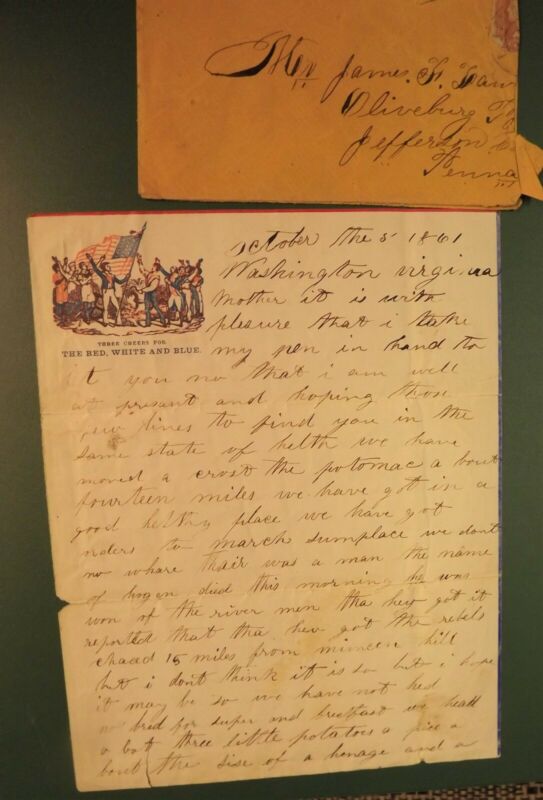 Mr James. F.
Oliveburg
Jefferson
Penna
THREE CHEERS FOR
THE RED, WHITE AND BLUE.
october the 5 1861
Washington virginia
mother it is with
pleasure that i take
my pen in hand to
let you no that i am well
at present and hoping those
few lines to find you in the
same state of helth we have
moved a crost the potomac a bout
fourteen miles we have got in a
good helthy place we have got
orders to march sumplace we dont
no whare thair was a man the name
of hogan died this morning he was
won of the river men tha hev got it
reported that tha hev got the rebels
chaced 15 miles from hill
but i dont think it is so but i hope
it may be so we have not hed
no bred for super and breckfast we hedd
a bot three little potatoes a pice a
bout the sise of a and a